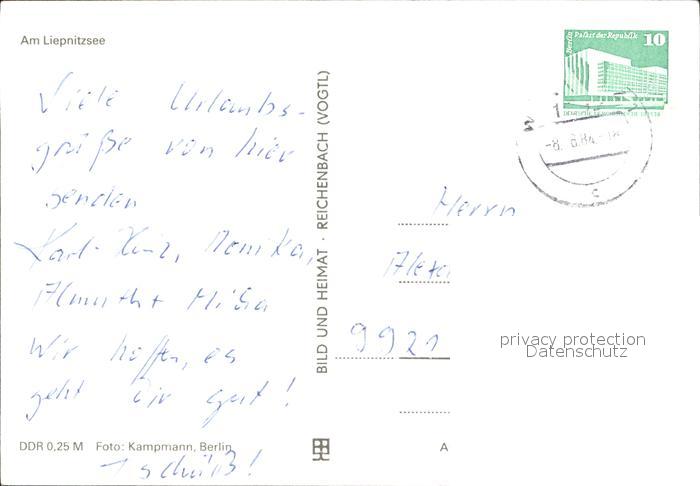 Am Liepnitzsee
Viele Urlaubs-
grüße von hier
senden
Karl-Heinz, Monika,
Almuth + Micha
Wir hoffen, es
geht Dir gut!
Tschüß!
DDR 0,25 M Foto: Kampmann, Berlin
BILD UND HEIMAT · REICHENBACH (VOGTL)
Berlin Palast der Republik 10
-8.-6.84
c
Herrn
9921
privacy protection
Datenschutz
A